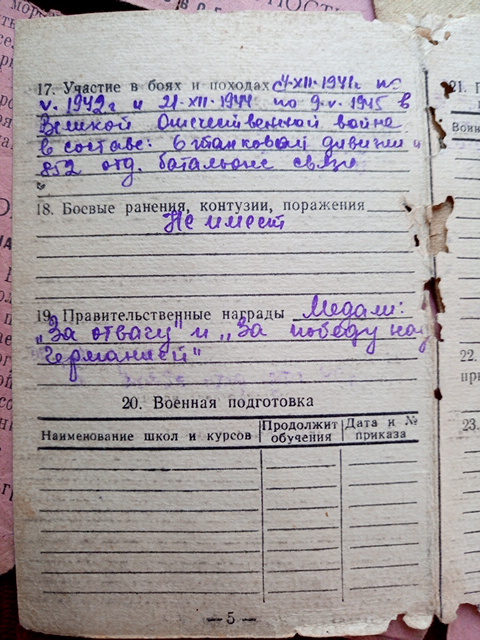 17. Участие в боях и походах с 4·XII·1941г по
V. 1942г и 21·XII·1944 по 9·V·1945 в
Великой Отечественной войне
в составе: 6 танковой дивизии и
852 отд. батальоне связи
18. Боевые ранения, контузии, поражения
Не имеет
19. Правительственные награды Медали:
„За отвагу" и „За победу над
Германией"
20. Военная подготовка
Наименование школ и курсов
Продолжит
обучения
Дата и №
приказа
— 5 —
21.
22.
23.